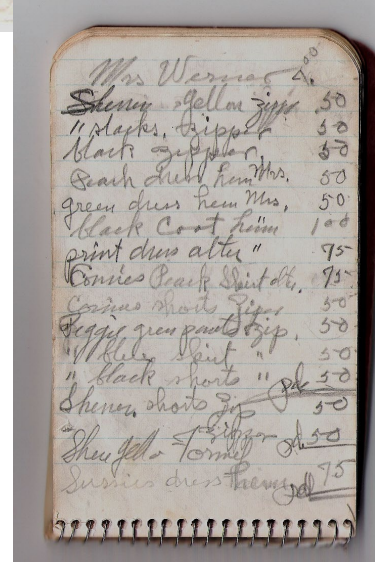 Mrs Werner 4.00
Sherrie yellow zipper .50
" slacks. zipper 50
black zipper 50
Peach dress hem Mrs. 50
green dress hem Mrs, 50
black Coat hem 1 00
print dress alter " 75
Connies Peach Skirt 75
Connies shorts Zipper 50
Peggie green pants zip. 50
" blue Skirt " 50
" black shorts " pd 50
shorts Zip 50
zipper
yello Formel pd. 50
Sussies dress hem pd 75